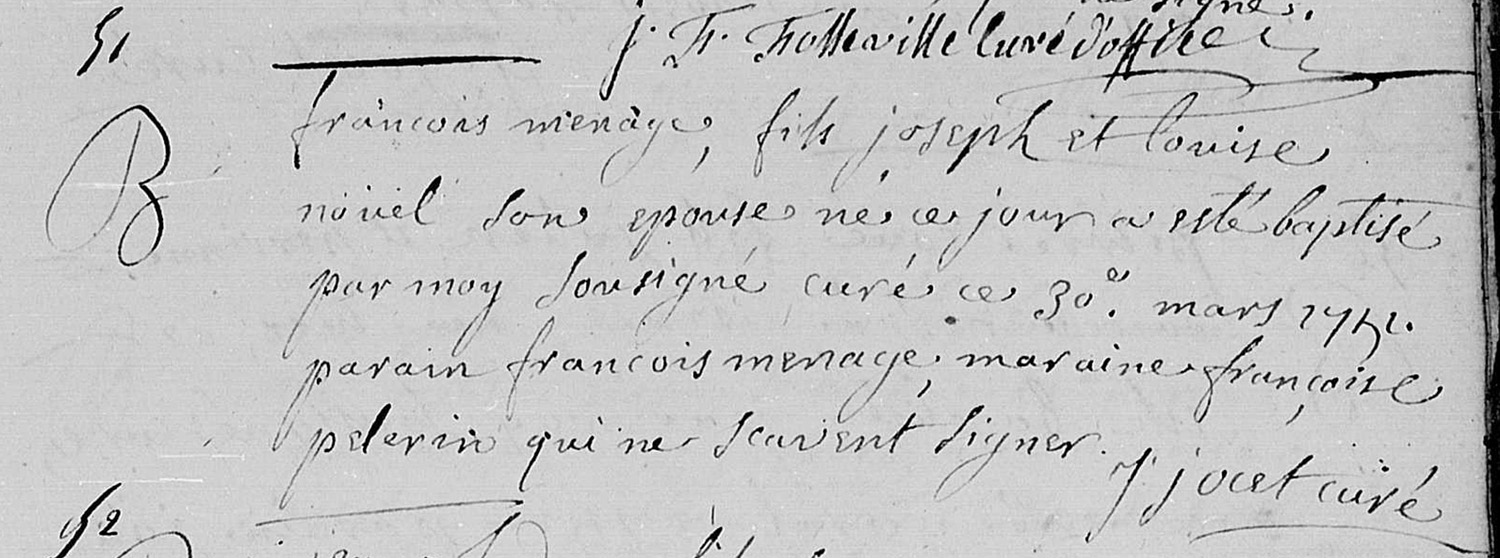 signé.
51 J. Fr. Folleville Curé d'office
B françois menage, fils joseph et louise
noüel son epouse né ce jour a esté baptisé
par moy sousigné curé ce 30e. mars 1751.
parain francois menage, maraine françoise
pelerin qui ne scavent signer.
J jocet curé
52